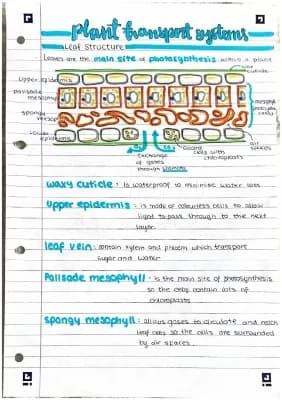 plant transport systems
Leaf Structure
Leaves are the main site of photosynthesis within a plant
waxy cuticle
Upper epidermis
palisade mesophyll
mesophyll
spongy mesophyll
lower epidermis
air spaces
Guard cells with chloroplasts
Exchange of gases through stomata
waxy cuticle: Is waterproof to minimise water loss
Upper epidermis: is made of colourless cells to allow
light to pass through to the next
layer.
leaf vein: contain xylem and phloem which transport
sugar and water
Palisade mesophyll: is the main site of photosynthesis
so the cells contain lots of
chloroplasts
spongy mesophyll: allows gases to circulate and reach
leaf cells so the cells are surrounded
by air spaces.